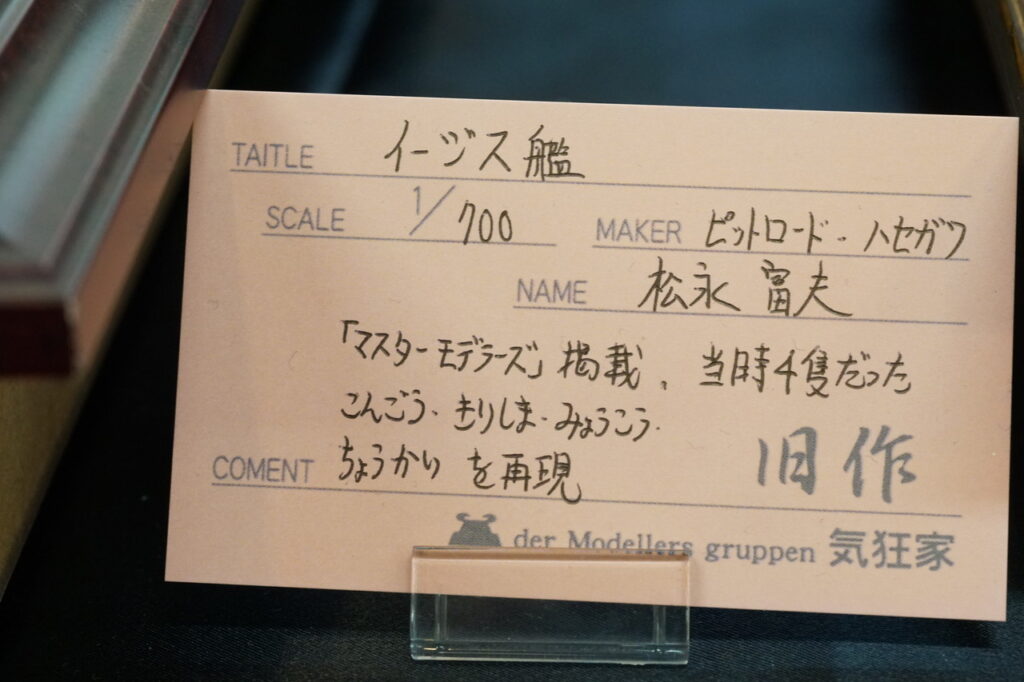 TAITLE イージス艦
SCALE 1/700 MAKER ピットロード・ハセガワ
NAME 松永 富夫
「マスターモデラーズ」掲載、当時4隻だった
こんごう・きりしま・みょうこう・
COMENT ちょうかい を再現
旧作
der Modellers gruppen 気狂家